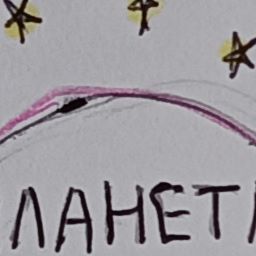 ЛАНЕТ